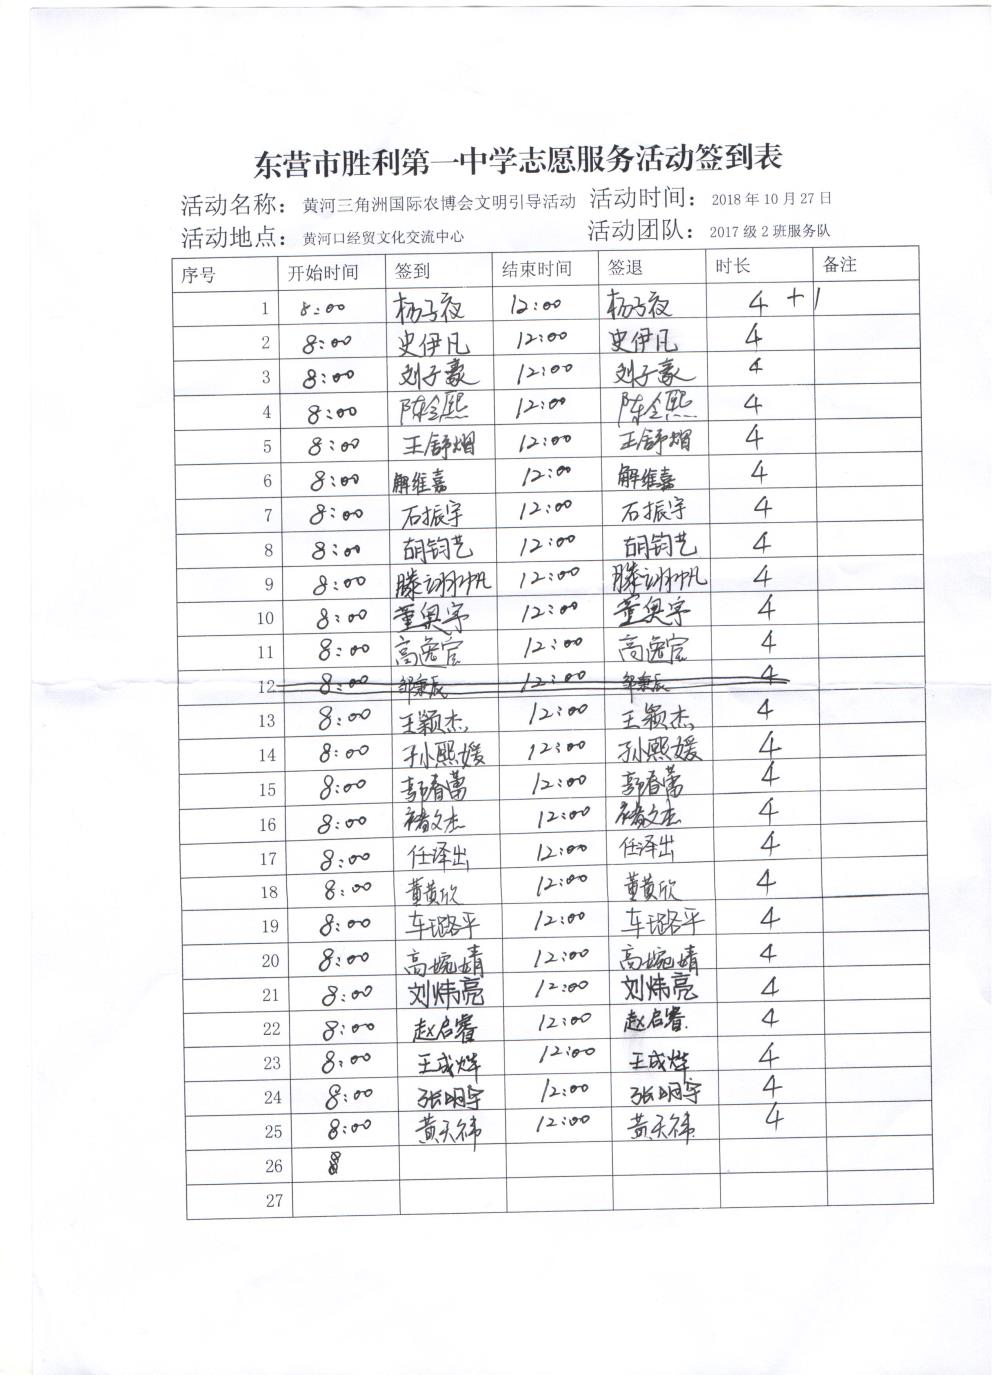 东营市胜利第一中学志愿服务活动签到表
活动名称：黄河三角洲国际农博会文明引导活动 活动时间：2018年10月27日
活动地点：黄河口经贸文化交流中心 活动团队：2017级2班服务队
序号 开始时间 签到 结束时间 签退 时长 备注
1 8:00 杨子夜 12:00 杨子夜 4 +1
2 8:00 史伊凡 12:00 史伊凡 4
3 8:00 刘子豪 12:00 刘子豪 4
4 8:00 陈令熙 12:00 陈令熙 4
5 8:00 王舒熠 12:00 王舒熠 4
6 8:00 解维嘉 12:00 解维嘉 4
7 8:00 石振宇 12:00 石振宇 4
8 8:00 胡钧艺 12:00 胡钧艺 4
9 8:00 滕翊帆 12:00 滕翊帆 4
10 8:00 董奥宇 12:00 董奥宇 4
11 8:00 高逸宸 12:00 高逸宸 4
12 8:00 邹秉辰 12:00 邹秉辰 4
13 8:00 王颖杰 12:00 王颖杰 4
14 8:00 孙熙媛 12:00 孙熙媛 4
15 8:00 郭春蕾 12:00 郭春蕾 4
16 8:00 褚文杰 12:00 褚文杰 4
17 8:00 任泽出 12:00 任泽出 4
18 8:00 董黄欣 12:00 董黄欣 4
19 8:00 车璐平 12:00 车璐平 4
20 8:00 高婉婧 12:00 高婉婧 4
21 8:00 刘炜亮 12:00 刘炜亮 4
22 8:00 赵启睿 12:00 赵启睿 4
23 8:00 王成烨 12:00 王成烨 4
24 8:00 张明宇 12:00 张明宇 4
25 8:00 黄天祎 12:00 黄天祎 4
26 8
27